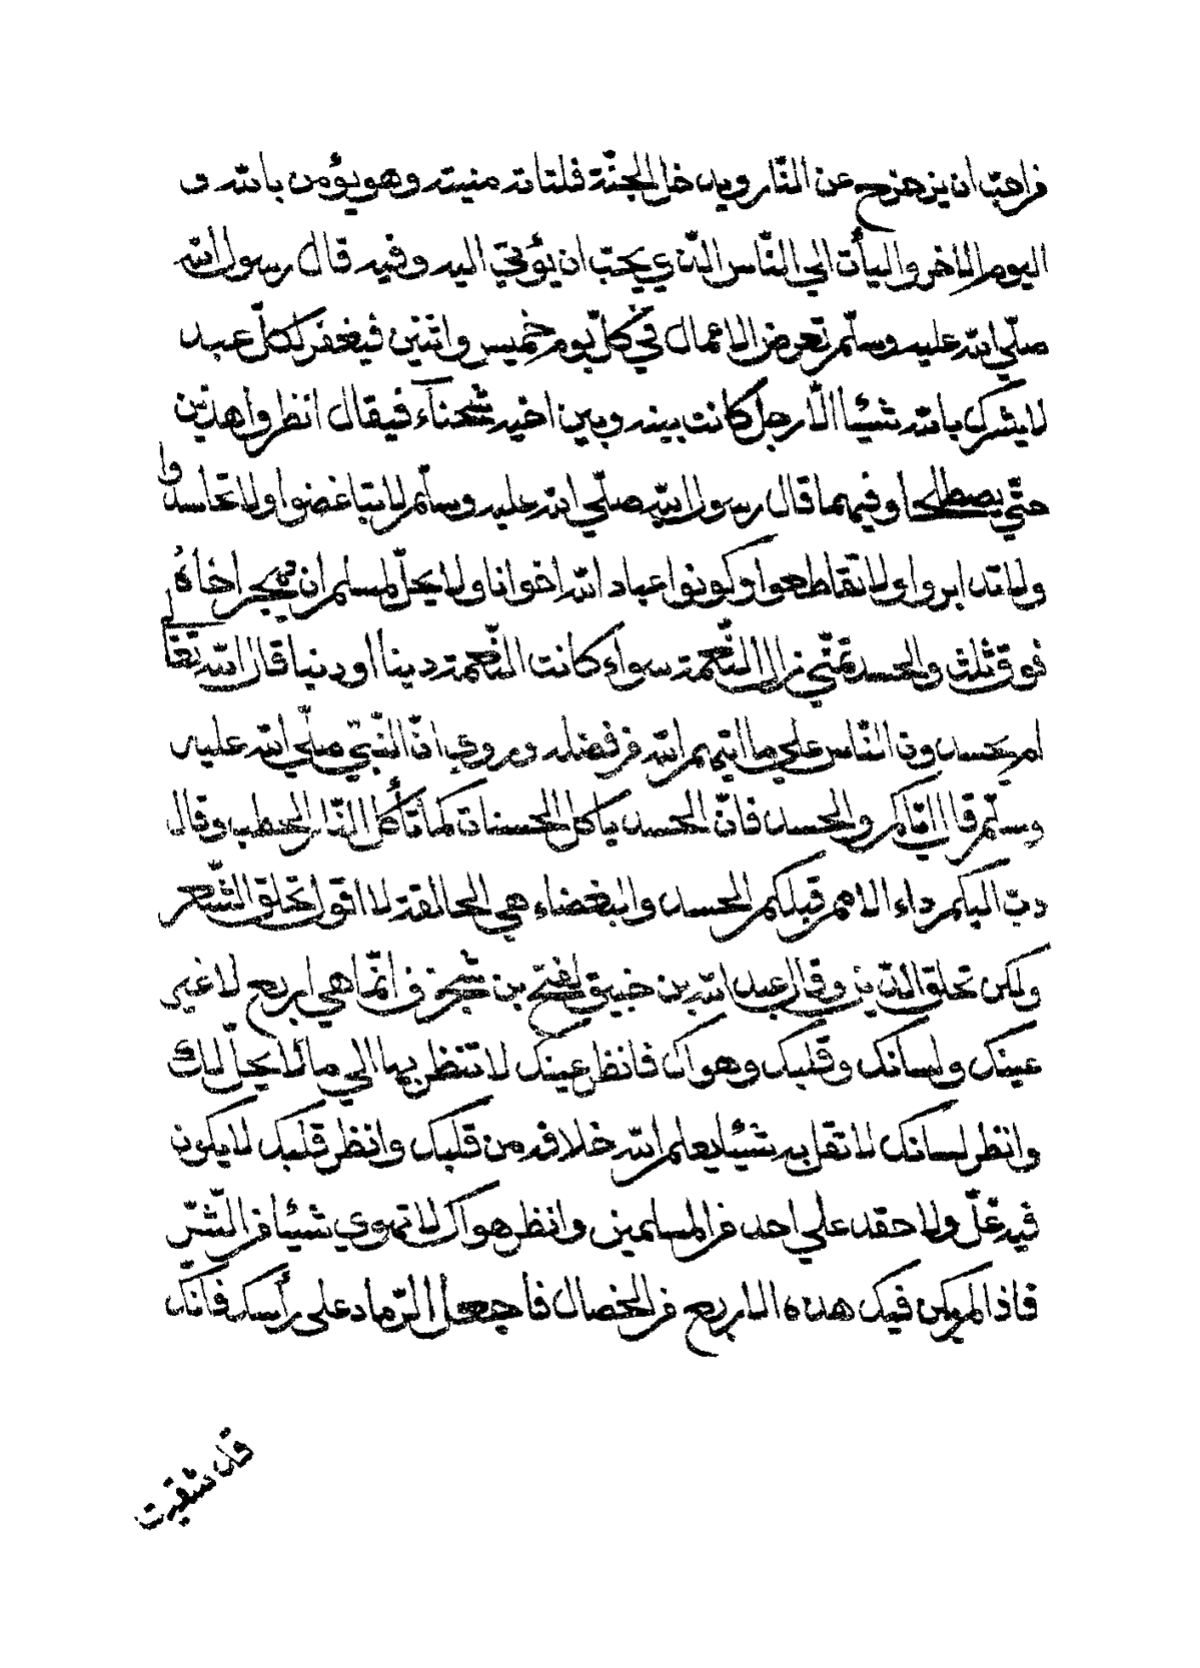 فمن احبّ ان يزحزح عن النّار ويدخل الجنّة فلتاته منيته وهو يؤمن بالله و
اليوم الاخر واليأت الي النّاس الذي يحبّ ان يؤتي اليه وفيه قال رسول الله
صلّي الله عليه وسلّم تعرض الاعمال في كلّ يوم خميس واثنين فيغفر لكلّ عبد
لا يشرك بالله شيئا الّا رجل كانت بينه وبين اخيه شحناء فيقال انظروا هذين
حتّي يصطلحا وفيهما قال رسول الله صلّي الله عليه وسلّم لا تباغضوا ولا تحاسدوا
ولا تدابروا ولا تقاطعوا وكونوا عباد الله اخوانا ولا يحلّ لمسلم ان يهجر اخاهُ
فوق ثلث والحسد تمنّي زال النّعمة سواء كانت النّعمة دينا او دنيا قال الله تعالي
ام يحسدون النّاس علي ما اتيهم الله من فضله وروي انّ النّبيّ صلّي الله عليه
وسلّم قال ايّاكم والحسد فانّ الحسد ياكل الحسنات كما تأكل النّار الحطب وقال
دبّ اليكم داء الامم قبلكم الحسد والبغضاء هي الحالقة لا اقول تحلق الشّعر
ولكن تحلق الدّين وقال عبد الله بن خبيق لفتح بن شجرف انّما هي اربع لا غير
عينك ولسانك وقلبك وهواك فانظر عينك لا تنظر بها الي ما لا يحلّ لك
وانظر لسانك لا تقل به شيئا يعلم الله خلافه من قلبك وانظر قلبك لا يكون
فيه غلّ ولا حقد علي احد من المسلمين وانظر هواك لا تهوي شيئا من الشّرّ
فاذا لم يكن فيك هذه الاربع من الخصال فأجعل الرّماد علي رأسك فانّك
قد شقيت